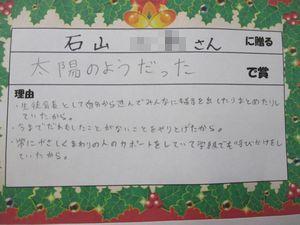 石山 さんに贈る
太陽のようだったで賞
理由
・生徒会長として自分から進んでみんなに指示を出したりまとめたりし
ていたから。
・今までだれもしたことがないことをやりとげたから。
・常にやさしくまわりの人のサポートをしていて学級でも呼びかけをし
ていたから。